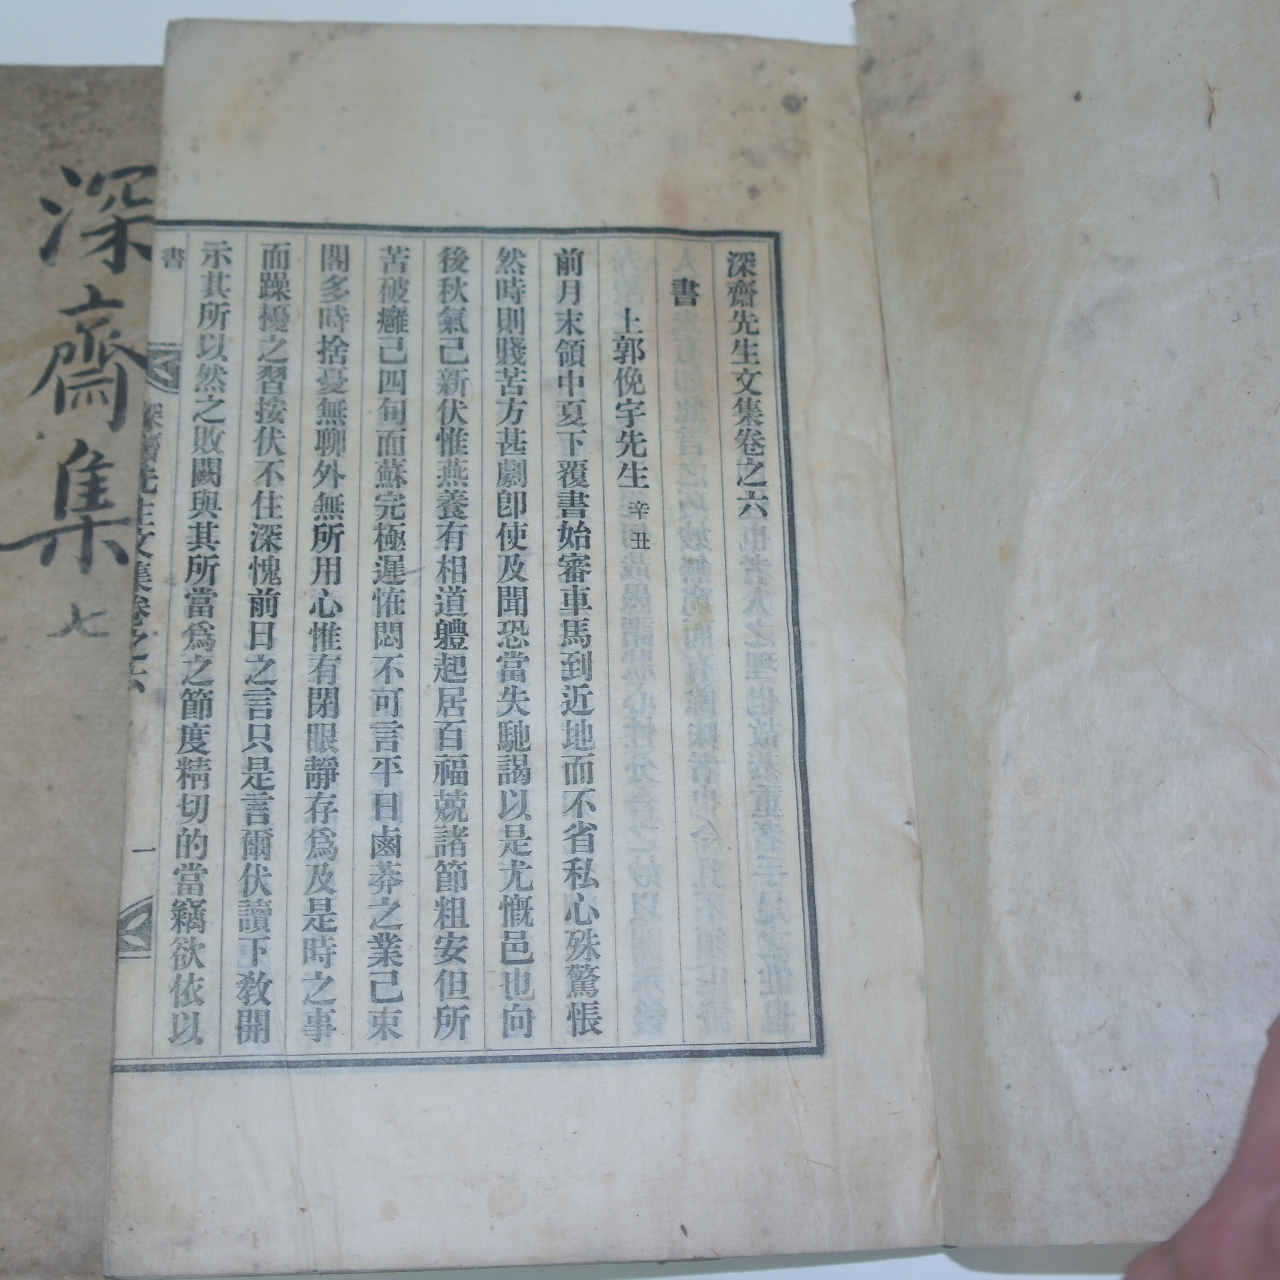 深齋先生文集卷之六
書
上郭俛宇先生 辛丑
前月末領中夏下覆書始審車馬到近地而不省私心殊驚悵
然時則賤苦方甚劇卽使及聞恐當失馳謁以是尤慨邑也向
後秋氣己新伏惟燕養有相道軆起居百福兢諸節粗安但所
苦破癰己四旬而蘇完極遲恠悶不可言平日鹵莽之業己束
閣多時捨憂無聊外無所用心惟有閉眼靜存爲及是時之事
而躁擾之習按伏不住深愧前日之言只是言爾伏讀下敎開
示其所以然之敗闕與其所當爲之節度精切的當竊欲依以
書
深齋先生文集卷之六
一
深齋集 七